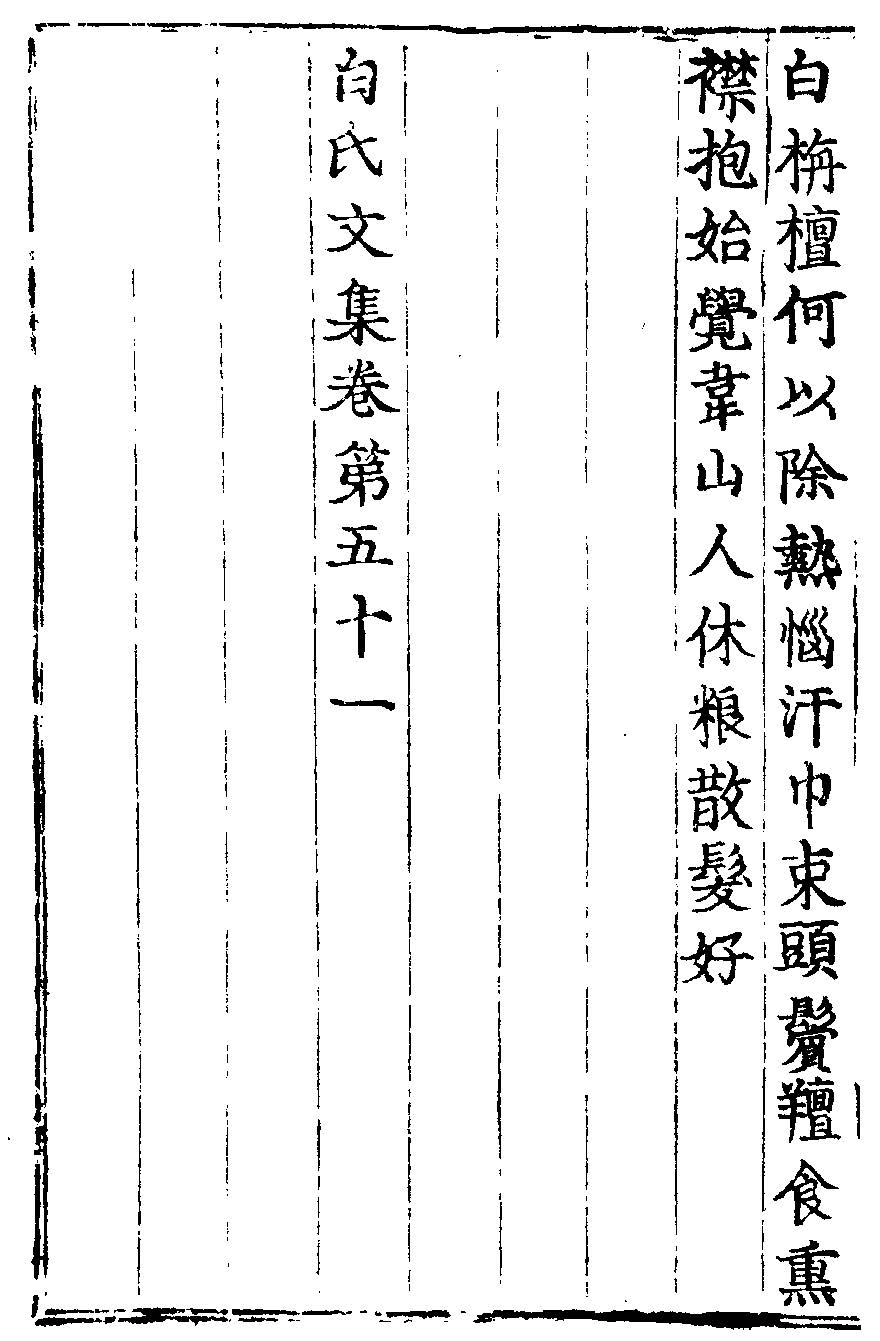 白栴檀何以除熱惱汗巾束頭鬢羶食熏
襟抱始覺韋山人休粮散髮好
白氏文集卷第五十一